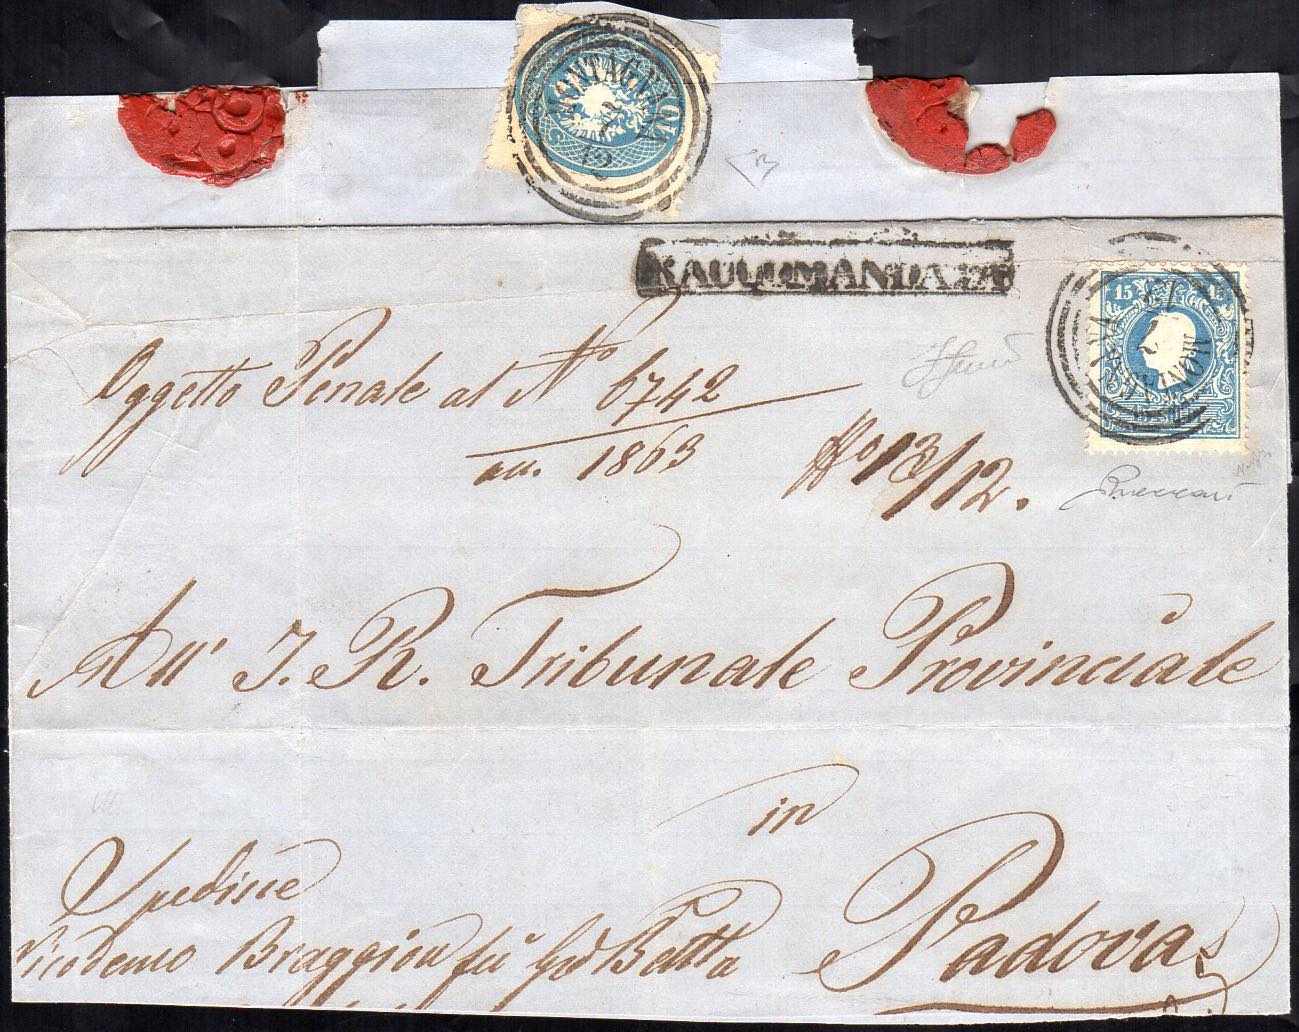 MONTAGNANA
12
RACCOMANDATA
15 15
MONTAGNANA
Oggetto Penale al N° 6742
an. 1863
N° 13/12.
All' I. R. Tribunale Provinciale
in
Padova
Spedisce
Nicodemo Braggion fu Gio Batta